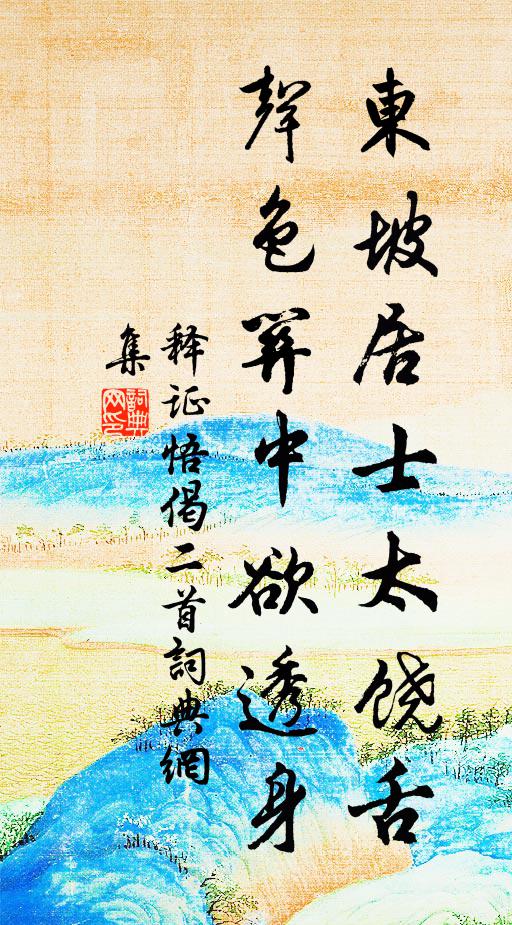 東坡居士太饶舌
聲色関中欲透身
释证悟偈二首詞典網
集
詞典網印